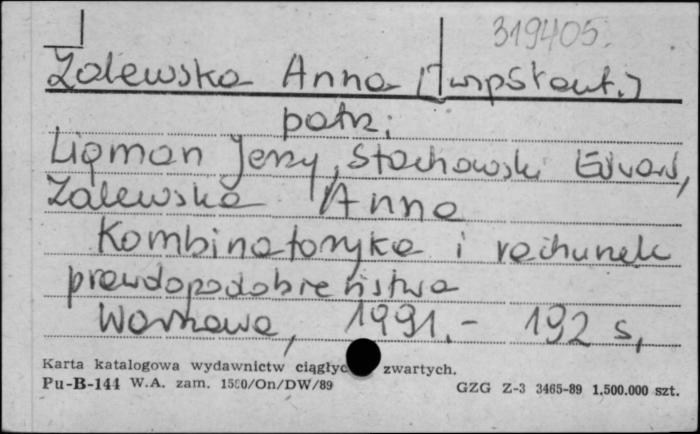 319405.
Zalewska Anna [współaut.]
patrz.
Ligman Jerzy, Stachowski Edward,
Zalewska Anna
Kombinatoryka i rachunek
prawdopodobieństwa
Warszawa, 1991.- 192 s,
Karta katalogowa wydawnictw ciągłyc zwartych.
Pu-B-144 W.A. zam. 1500/On/DW/89 GZG Z-3 3465-89 1,500.000 szt.